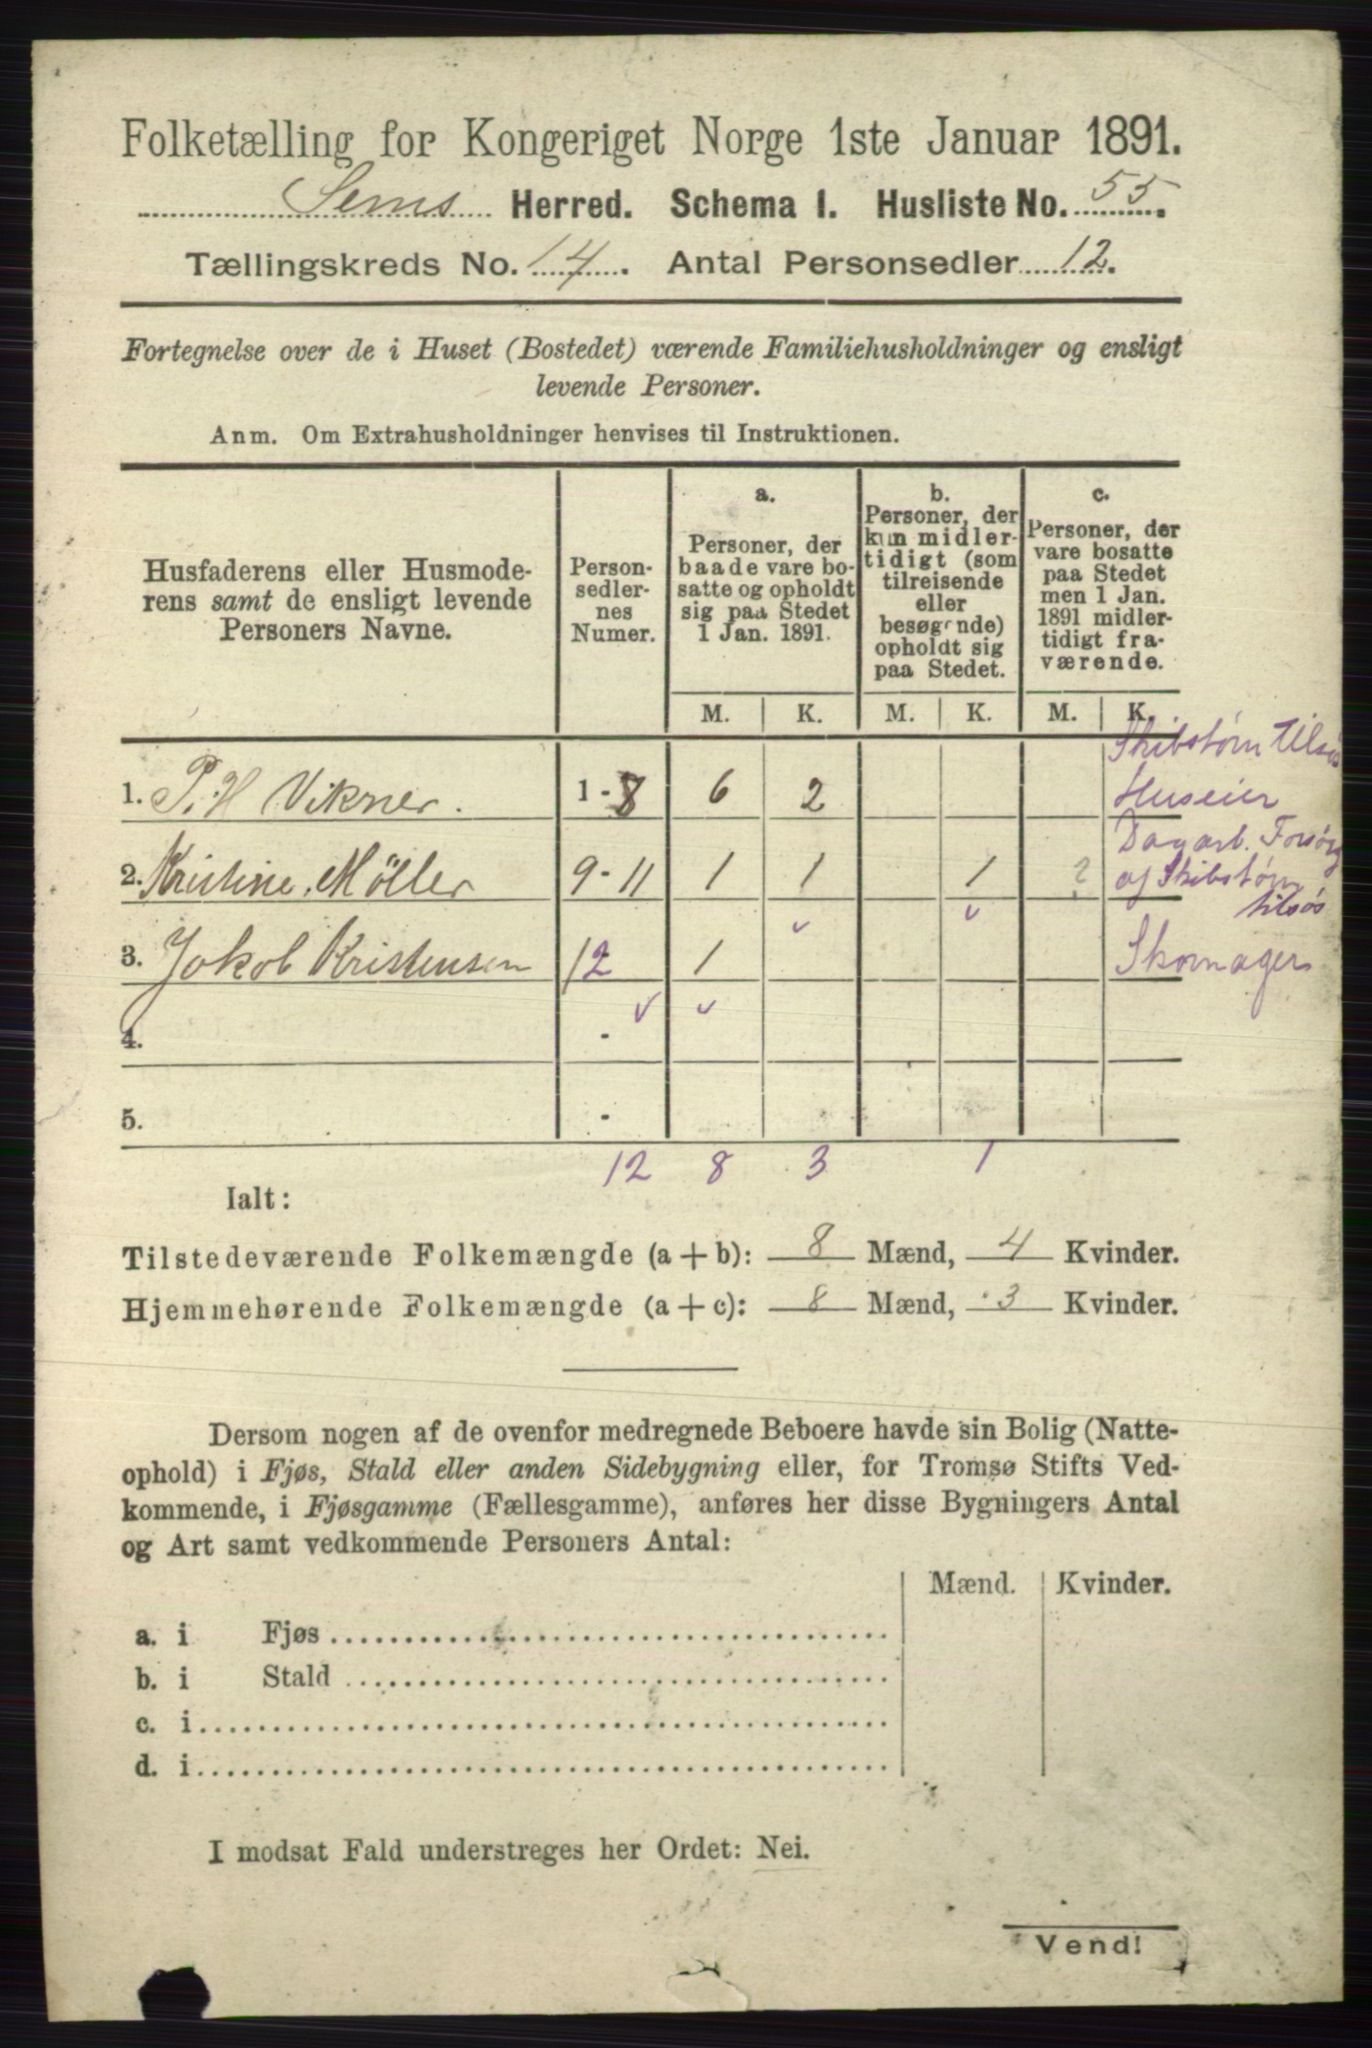 Folketælling for Kongeriget Norge 1ste Januar 1891.
Sems Herred. Schema 1. Husliste No. 55.
Tællingskreds No. 14. Antal Personsedler 12.
Fortegnelse over de i Huset (Bostedet) værende Familiehusholdninger og ensligt
levende Personer.
Anm. Om Extrahusholdninger henvises til Instruktionen.
Husfaderens eller Husmode-
rens samt de ensligt levende
Personers Navne.
Person-
sedler-
nes
Numer.
a.
Personer, der
baade vare bo-
satte og opholdt
sig paa Stedet
1 Jan. 1891.
b.
Personer, der
kun midler-
tidigt (som
tilreisende
eller
besøgende)
opholdt sig
paa Stedet.
c.
Personer, der
vare bosatte
paa Stedet
men 1 Jan.
1891 midler-
tidigt fra-
værende.
M. K. M. K. M. K.
Skibstøm tilsøs
Huseier
1. P. H Vikner. 1-8 6 2
Dagarb. Forsørg
2. Kristine Möller 9-11 1 1 1 2 af Skibstøm
tilsøs
3. Jakob Kristensen 12 1 Skomager
4. -
5. -
12 8 3 1
Ialt:
Tilstedeværende Folkemængde (a + b): 8 Mænd, 4 Kvinder.
Hjemmehørende Folkemængde (a + c): 8 Mænd, 3 Kvinder.
Dersom nogen af de ovenfor medregnede Beboere havde sin Bolig (Natte-
ophold) i Fjøs, Stald eller anden Sidebygning eller, for Tromsø Stifts Ved-
kommende, i Fjøsgamme (Fællesgamme), anføres her disse Bygningers Antal
og Art samt vedkommende Personers Antal:
Mænd. Kvinder.
a. i Fjøs
b. i Stald
c. i
d. i
I modsat Fald understreges her Ordet: Nei.
Vend!